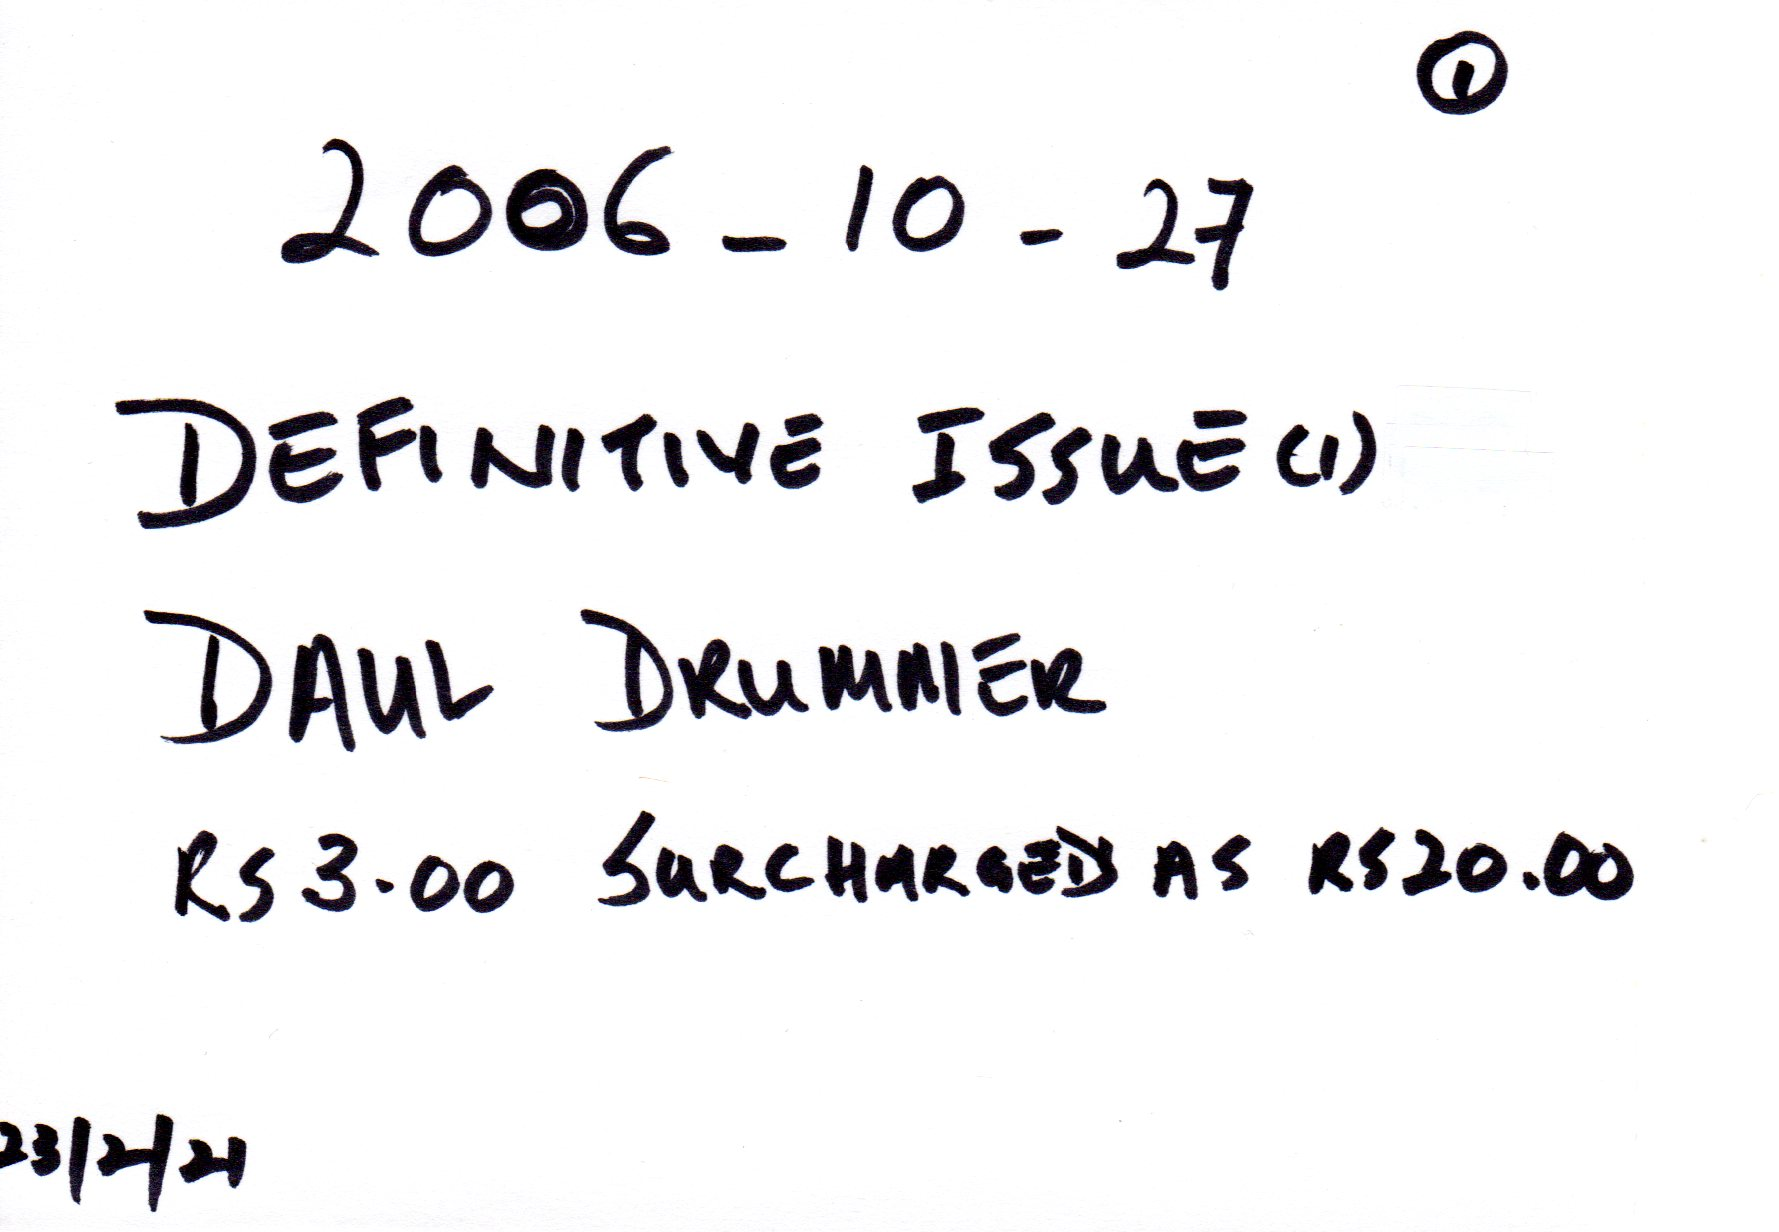 ①
2006-10-27
DEFINITIVE ISSUE (1)
DAUL DRUMMER
RS 3.00 SURCHARGED AS RS 20.00
23/2/21